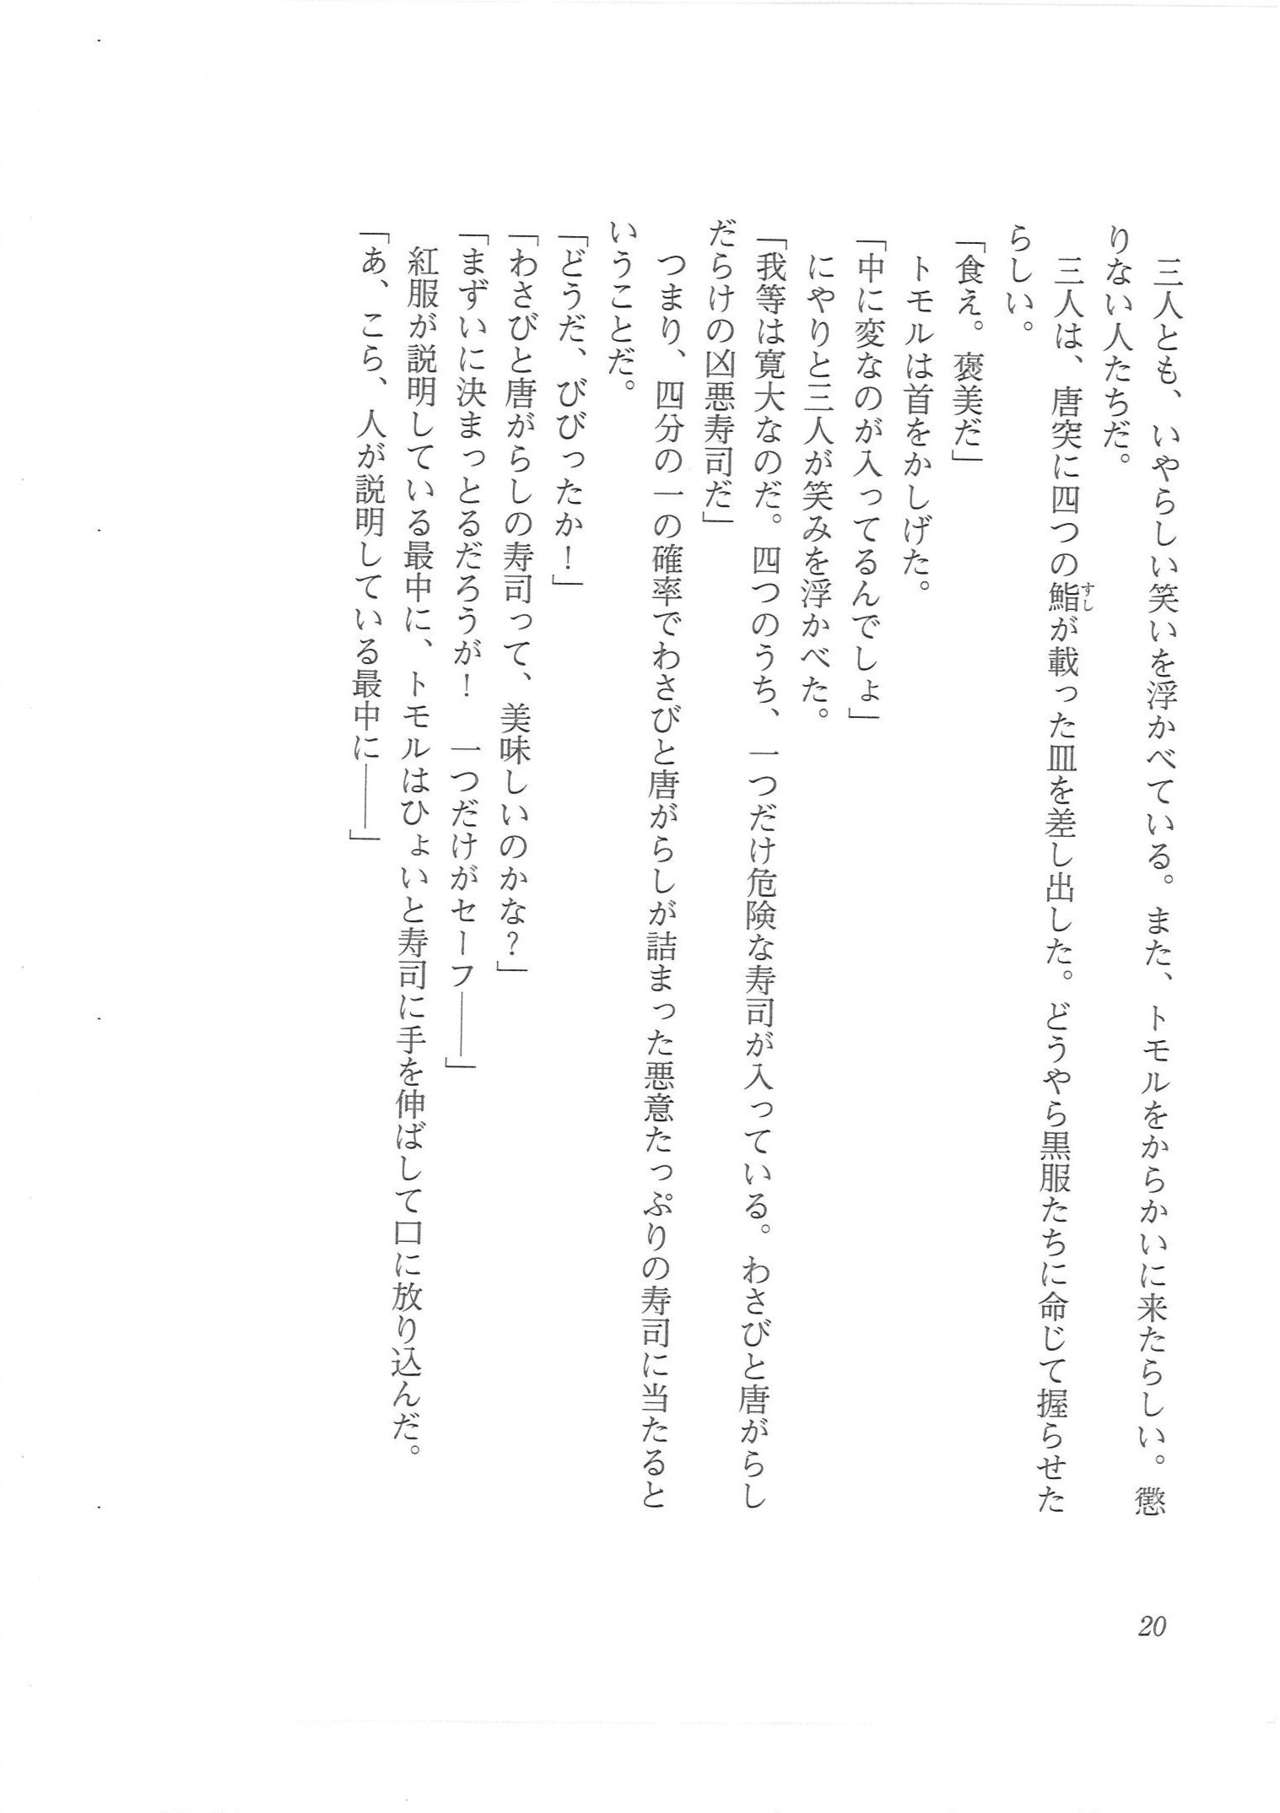 三人とも、いやらしい笑いを浮かべている。また、トモルをからかいに来たらしい。懲
りない人たちだ。
三人は、唐突に四つの鮨が載った皿を差し出した。どうやら黒服たちに命じて握らせた
すし
らしい。
「食え。褒美だ」
トモルは首をかしげた。
「中に変なのが入ってるんでしょ」
にやりと三人が笑みを浮かべた。
「我等は寛大なのだ。四つのうち、一つだけ危険な寿司が入っている。わさびと唐がらし
だらけの凶悪寿司だ」
つまり、四分の一の確率でわさびと唐がらしが詰まった悪意たっぷりの寿司に当たると
いうことだ。
「どうだ、びびったか！」
「わさびと唐がらしの寿司って、美味しいのかな？」
「まずいに決まっとるだろうが！　一つだけがセーフ――」
紅服が説明している最中に、トモルはひょいと寿司に手を伸ばして口に放り込んだ。
「あ、こら、人が説明している最中に――」
20